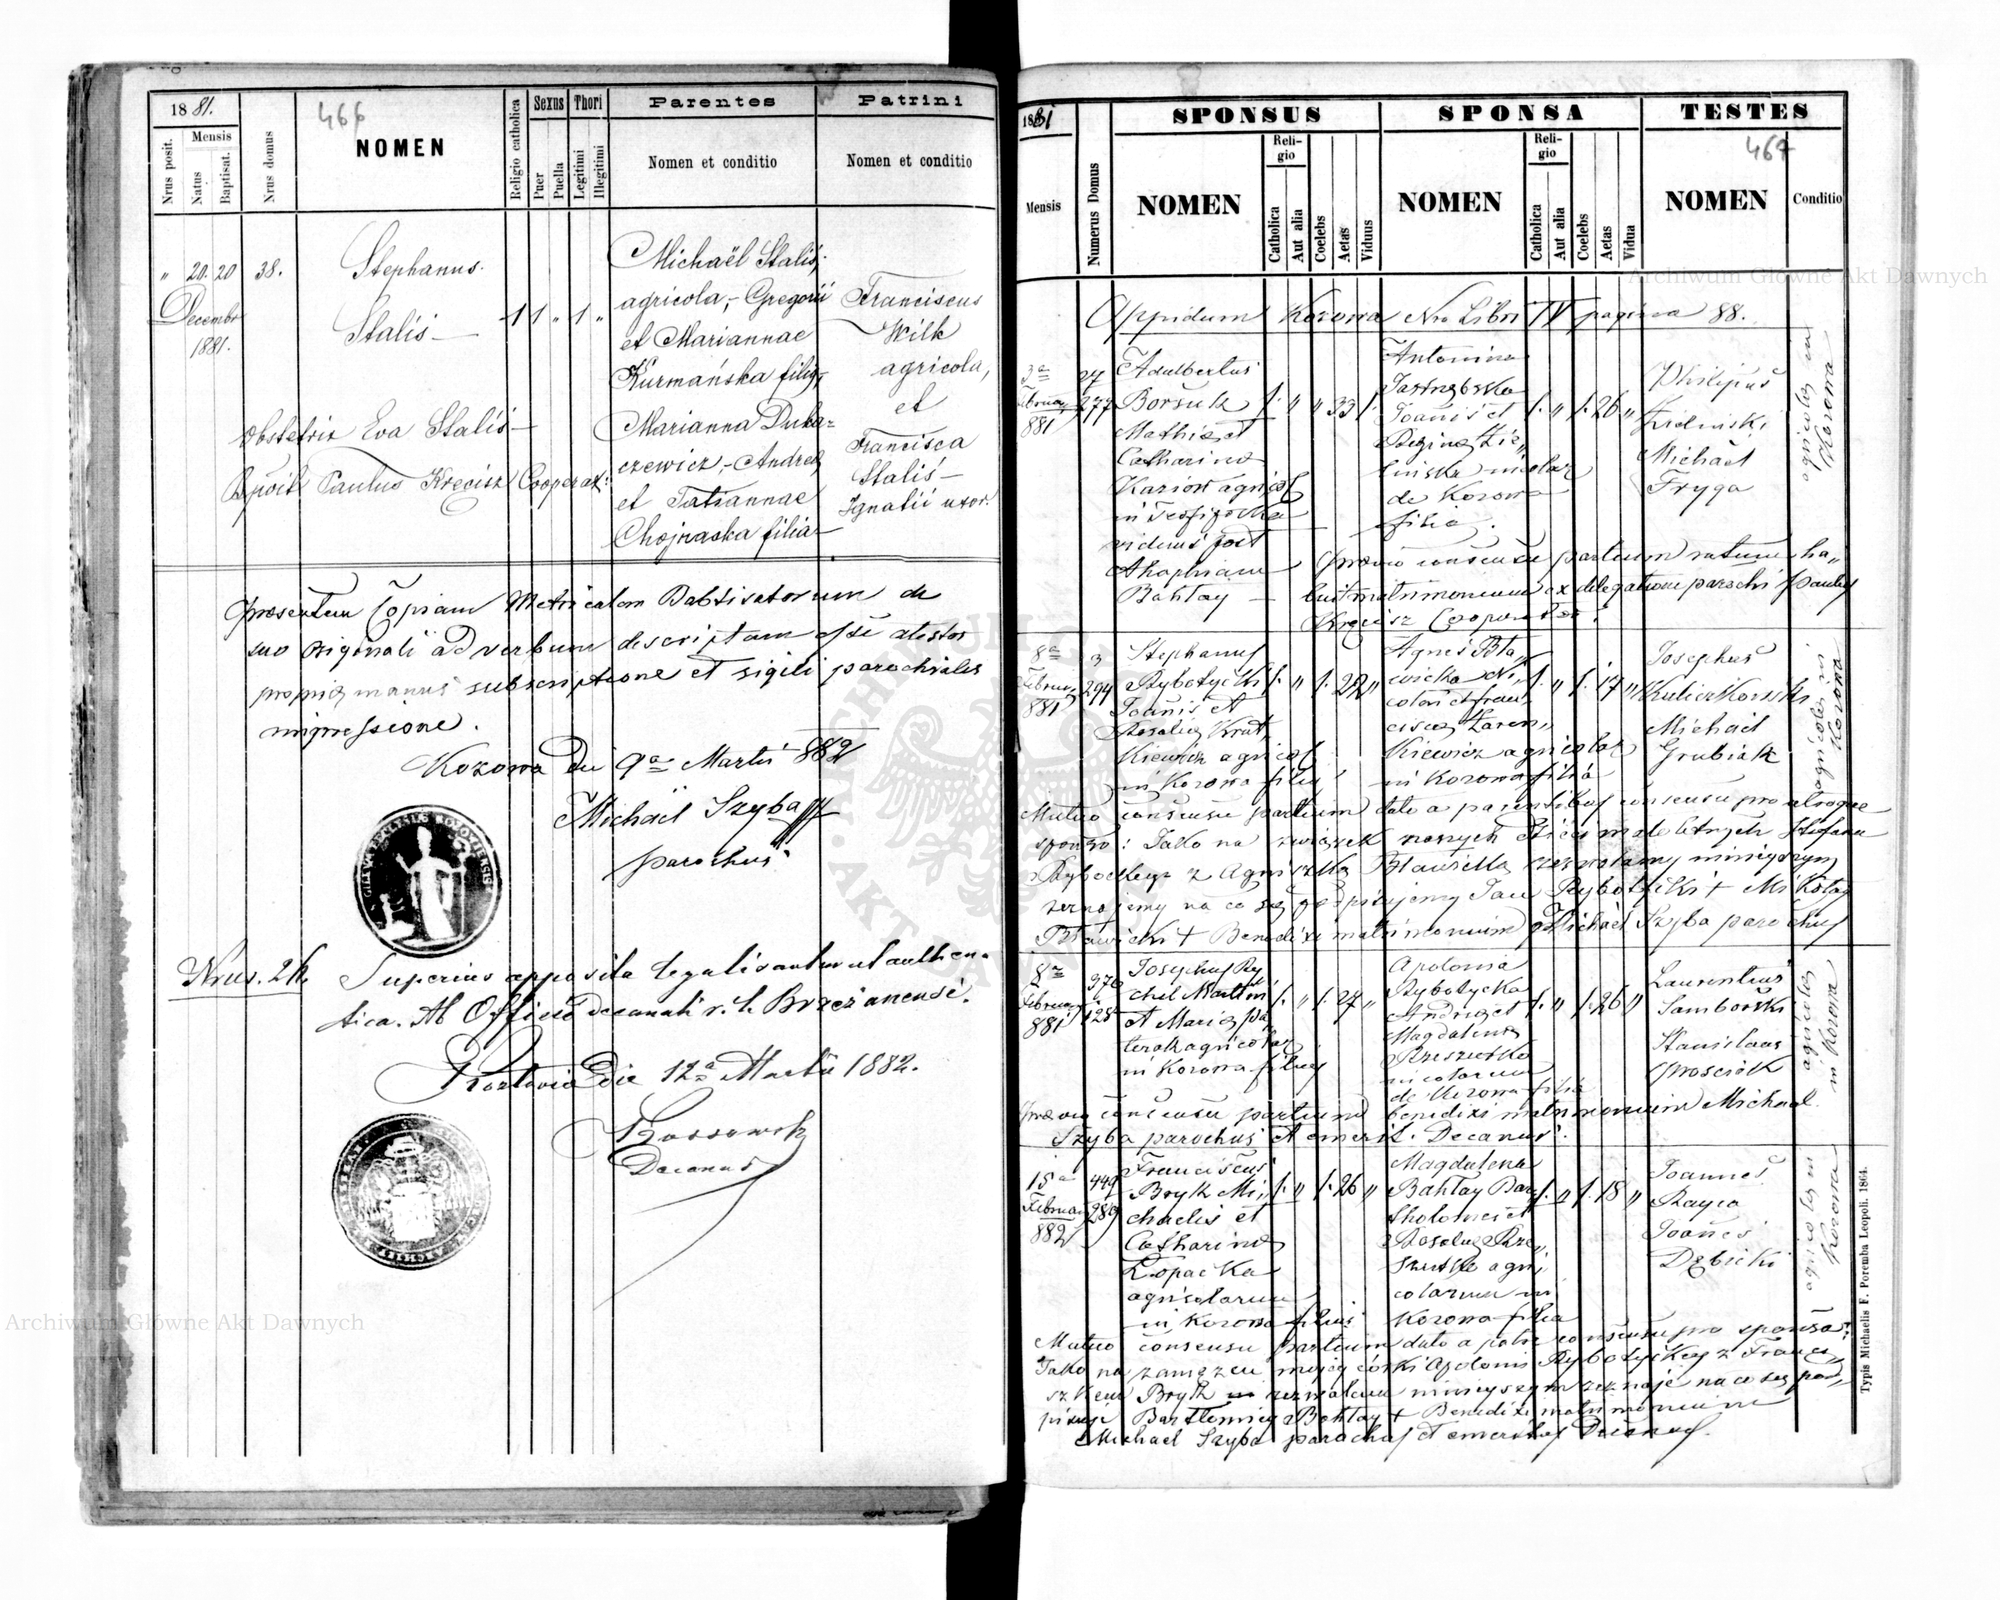 1881.
466
Nrus posit.
Mensis
Natus
Baptisat.
Nrus domus
NOMEN
Religio catholica
Sexus
Puer
Puella
Thori
Legitimi
Illegitimi
Parentes
Nomen et conditio
Patrini
Nomen et conditio
" 20. 20 38.
Decembr
1881.
Stephanus
Stalis
1 1 " 1 "
Michaël Stalis,
agricola, Gregorii
et Mariannae
Kurmańska filius
Marianna Duka=
czewicz, Andreae
et Tatiannae
Chojnaska filia
Franciscus
Wilk
agricola,
et
Francisca
Stalis
Ignatii uxor.
Obstetrix Eva Stalis
Bptvit Paulus Kręcisz Cooperat.
Praesentem Copiam Metricalem Babtisatorum de
suo originali ad verbum descriptam esse atestor
propria manus subscriptione et sigili parochiales
impressione.
Kozowa Die 9a Martii 882
Michäel Szyba
parochus
Nrus. 24. Superius apposita legalisantur ut authen=
tica. Ab Officio decanali r. l. Brzeżanensi.
die 12a Martii 1882.
Decanus
1881
467
Mensis
Numerus Domus
SPONSUS
NOMEN
Religio
Catholica
Aut alia
Coelebs
Aetas
Viduus
SPONSA
NOMEN
Religio
Catholica
Aut alia
Coelebs
Aetas
Vidua
TESTES
NOMEN
Conditio
Oppidum Kozowa Nro Libri IV pagina 88.
3a
Februar
881
27
277
Adalbertus
Borsuk
Mathiae et
Catharina
Kaziow agricol
viduus post
Bahlay
1. " " 33 1.
Antonina
Jastrzębska
Joannis et
Regina
de Kozowa
filia.
1. " 1. 26 "
Philipus
Zieliński
Michael
Fryga
agricolae in
Kozowa
Praevio consensu partium ratum ha"
buit matrimonium ex delegatione parochi Paulus
Kręcisz Cooperator.
8a
Februar
881
3
294
Stephanus
Rybotycki
Joanis et
Rosalia Krat,
Kiewicz agricol
in Kozowa filius
1. " 1. 22 "
Agnes Bła"
wicka Ni"
colai et fran"
cisca Łaren"
Kiewicz agricolar
in Kozowa filia
1. " 1. 17 "
Josephus
Kuliczkowski
Michael
Grubiak
agricolae in
Kozowa
Mutuo consensu partium dato a parentibus consensu pro utroque
sponso: Jako na związek naszych dzieci małoletnych Stefana
Rybockego z Agniszką Bławicką zezwalamy niniejszym
zeznajemy na co się podpisujemy Jan Rybotycki + Mikołaj
Bławicki + Benedixi matrimonium Michael Szyba parochus
8a
Februar
881
370
128
Josephus Ry
chel Martini
et Maria Pa,
terak agricolar
in Kozowa filius
1. " 1. 27 "
Apolonia
Rybotycka
Andrea et
Magdalena
Rzeszutko
agricolarum
de Kozowa filia
1. " 1. 26 "
Laurentius
Samborski
Stanislaus
Prosciok
agricolae
in Kozowa
Praevio consensu partium benedixi matrimonium Michael
Szyba parochus et emerit. Decanus.
15a
Februar
882
449
289
Franciscus
Bryk Mi,
chaelis et
Catharina
Łopacka
agricolarum
in Kozowa filius
1. " 1. 26 "
Magdalena
Bahlay Bar
tholomei et
Rosalia Rze"
szutko agri
colarum in
Kozowa filia
1. " 1. 18 "
Joannes
Rayca
Joannes
Dębicki
agricolae in
Kozowa
Mutuo consensu partium dato a patre consensu pro sponsa:
Jako na zamęzcu mojej córki Apolonii Rybotyckey z Franci"
szkem Bryk zezwalam niniejszym zeznaję na co się pod"
pisuję Bartłomiej Bahlay + Benedixi matrimonium
Michael Szyba parochus et emeritus Decanus.
Typis Michaelis F. Poremba Leopoli. 1864.
Archiwum Główne Akt Dawnych
Archiwum Główne Akt Dawnych